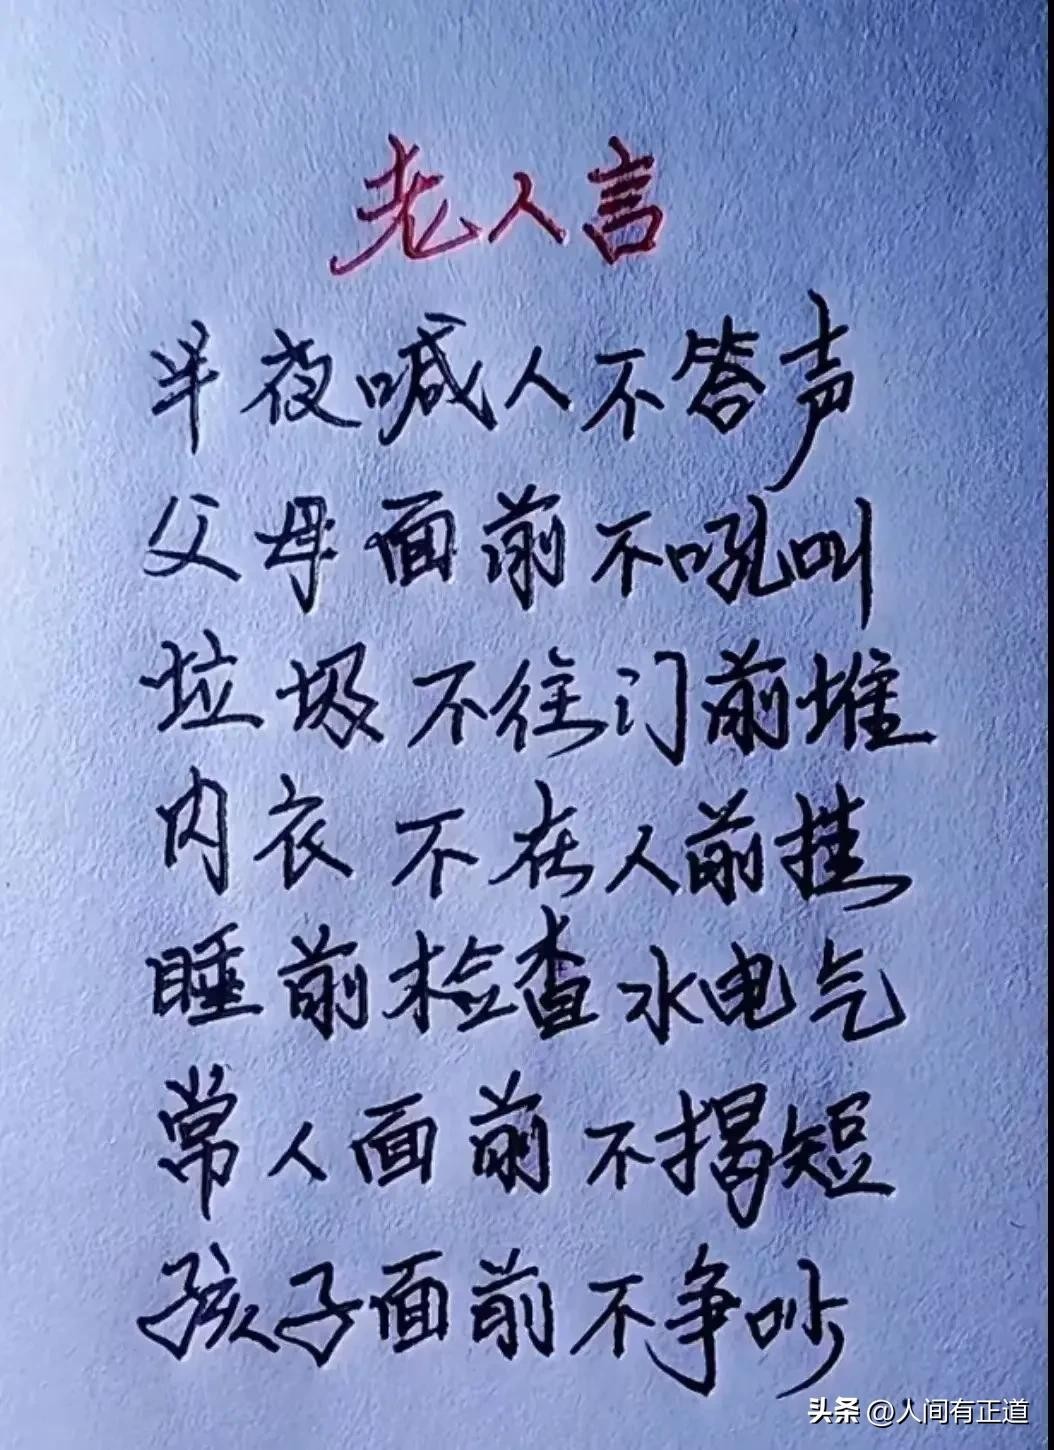 老人言
半夜喊人不答声
父母面前不吼叫
垃圾不往门前堆
内衣不在人前挂
睡前检查水电气
常人面前不揭短
孩子面前不争吵
头条 @人间有正道